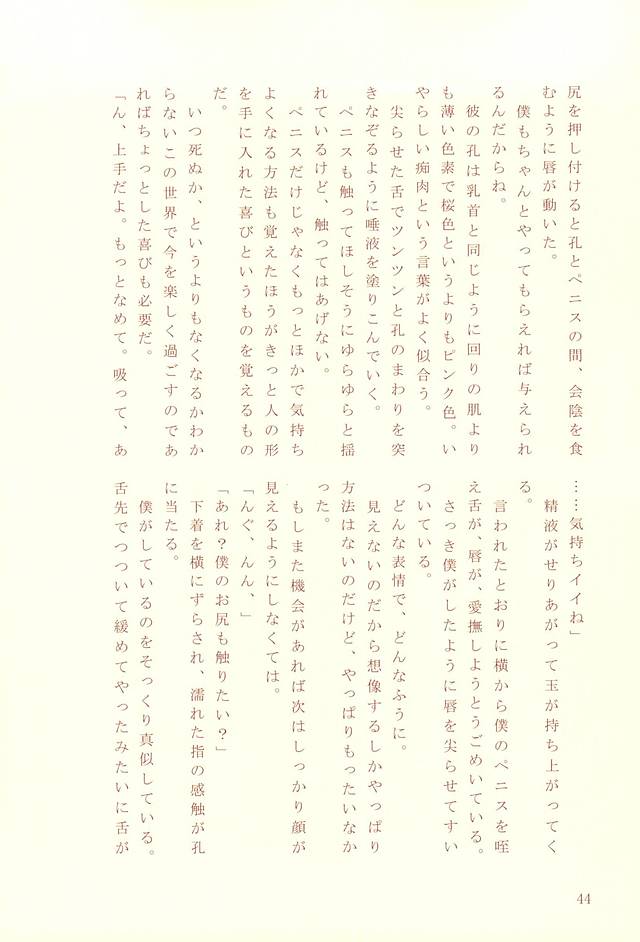 尻を押し付けると孔とペニスの間、会陰を食
むように唇が動いた。
僕もちゃんとやってもらえれば与えられ
るんだからね。
彼の孔は乳首と同じように回りの肌より
も薄い色素で桜色というよりもピンク色。い
やらしい痴肉という言葉がよく似合う。
尖らせた舌でツンツンと孔のまわりを突
きなぞるように唾液を塗りこんでいく。
ペニスも触ってほしそうにゆらゆらと揺
れているけど、触ってはあげない。
ペニスだけじゃなくもっとほかで気持ち
よくなる方法も覚えたほうがきっと人の形
を手に入れた喜びというものを覚えるもの
だ。
いつ死ぬか、というよりもなくなるかわか
らないこの世界で今を楽しく過ごすのであ
ればちょっとした喜びも必要だ。
「ん、上手だよ。もっとなめて。吸って、あ
……気持ちイイね」
精液がせりあがって玉が持ち上がってく
る。
言われたとおりに横から僕のペニスを咥
え舌が、唇が、愛撫しようとうごめいている。
さっき僕がしたように唇を尖らせてすい
ついている。
どんな表情で、どんなふうに。
見えないのだから想像するしかやっぱり
方法はないのだけど、やっぱりもったいなか
った。
もしまた機会があれば次はしっかり顔が
見えるようにしなくては。
「んぐ、んん、」
「あれ？僕のお尻も触りたい？」
下着を横にずらされ、濡れた指の感触が孔
に当たる。
僕がしているのをそっくり真似している。
舌先でつついて緩めてやったみたいに舌が
44